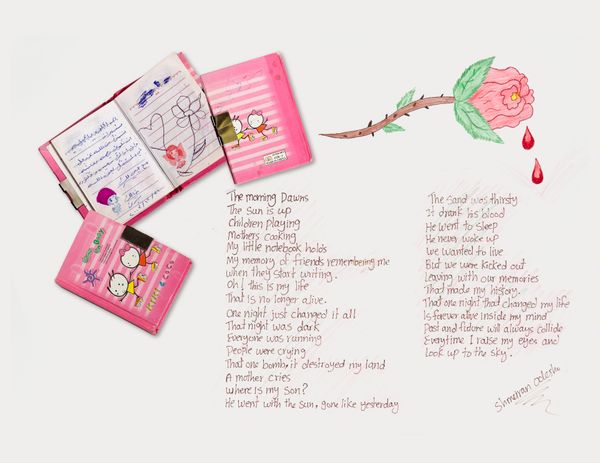 The morning Dawns
The Sun is up
Children playing
Mothers cooking
My little notebook holds
My memory of friends remembering me
when they start writing.
Oh! this is my life
That is no longer alive.
One night just changed it all
That night was dark
Everyone was running
People were crying
That one bomb, it destroyed my land
A mother cries
where is my son?
He went with the Sun, gone like yesterday
The Sand was thirsty
It drank his blood
He went to sleep
He never woke up
we wanted to live
But we were kicked out
Leaving with our memories
That made my history.
That one night that changed my life
Is forever alive inside my mind
Past and future will always collide
Everytime I raise my eyes and
Look up to the sky.